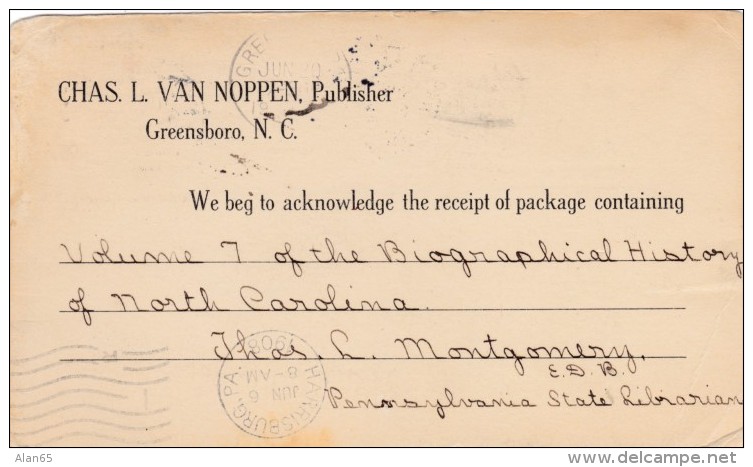 CHAS. L. VAN NOPPEN, Publisher
Greensboro, N. C.
We beg to acknowledge the receipt of package containing
Volume 7 of the Biographical History
of North Carolina.
Thos. L. Montgomery,
E.D.B.
Pennsylvania State Librarian
GRE
JUN
HARRISBURG, PA.
JUN 6
8-AM
1908
Alan65
delcampe.net